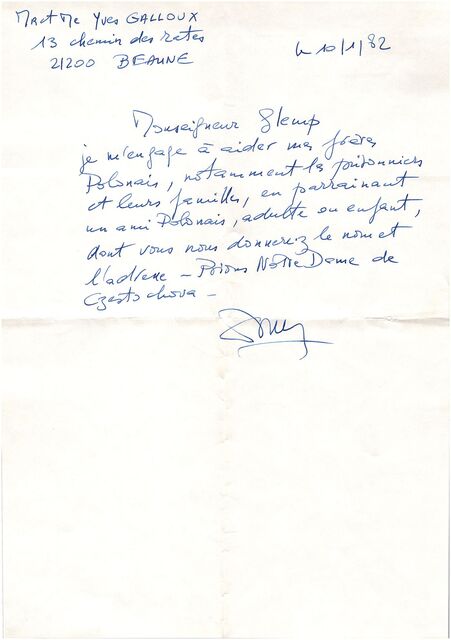 Mr et Me Yves GALLOUX
13 chemin des rates
21200 BEAUNE
le 10/1/82
Monseigneur Glemp
je m'engage à aider mes frères
Polonais, notamment les prisonniers
et leurs familles, en parrainant
un ami Polonais, adulte ou enfant,
dont vous nous donnerez le nom et
l'adresse - Prions Notre Dame de
Czestochova -